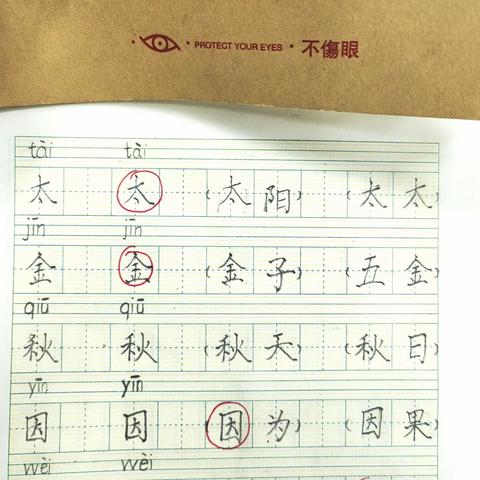 PROTECT YOUR EYES · 不傷眼
tài tài
太 太 (太阳) (太太)
jīn jīn
金 金 (金子) (五金)
qiū qiū
秋 秋 (秋天) (秋日)
yīn yīn
因 因 (因为) (因果)
wèi wèi